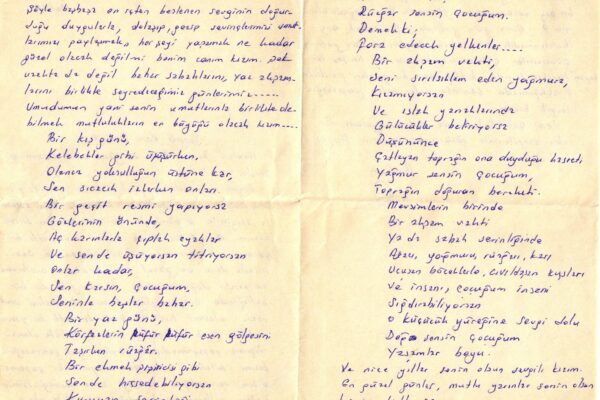 Şöyle başbaşa en içten beslenen sevginin doğur-
duğu duygularla, dolaşıp, gezip sevinçlerimizi
larımızı paylaşmak, her şeyi yapmak ne kadar
güzel olacak değilmi benim canım kızım. Pek
uzakta da değil bahar sabahlarını, yaz akşam-
larını birlikte seyredeceğimiz günlerimiz.....
Umudumun yani senin umutlarınla birlikte ola-
bilmek mutlulukların en büyüğü olacak kızım....
Bir kış günü,
Kelebekler gibi uçuşurken,
Olanca yoksulluğun üstüne kar,
Sen sıcacık tutarken onları.
Bir çeşit resmi yapıyorsa
Gözlerinin önünde,
Aç karınlarla çıplak ayaklar
Ve sende üşüyorsan titriyorsan
Onlar kadar,
Sen karsın, çocuğum,
Seninle başlar bahar.
Bir yaz günü,
Körfezlerin püfür püfür esen gölgesini
Taşırken rüzgâr.
Bir ekmek pişirisi gibi
Sende hissedebiliyorsan
Rüzgâr sensin çocuğum.
Demekki;
Fora edecek yelkenler....
Bir akşam vakti,
Seni sırılsıklam eden yağmura,
Kızmıyorsan
Ve ıslak yanaklarında
Gülücükler bekriyorsa
Düşününce
Çatlayan toprağın ona duyduğu hasreti
Yağmur sensin çocuğum,
Toprağın doğuran bereketi.
Mevsimlerin birinde
Bir akşam vakti
Ya da sabah serinliğinde
Ağacı, yağmuru, rüzgârı, karı
Uçuşan böcekleri, cıvıldaşan kuşları
Ve insanı, çocuğum insanı
Sığdırabiliyorsan
O küçücük yüreğine sevgi dolu
Doğa sensin çocuğum
Yaşamlar boyu.
Ve nice yıllar senin olsun sevgili kızım.
En güzel günler, mutlu yarınlar senin olsun